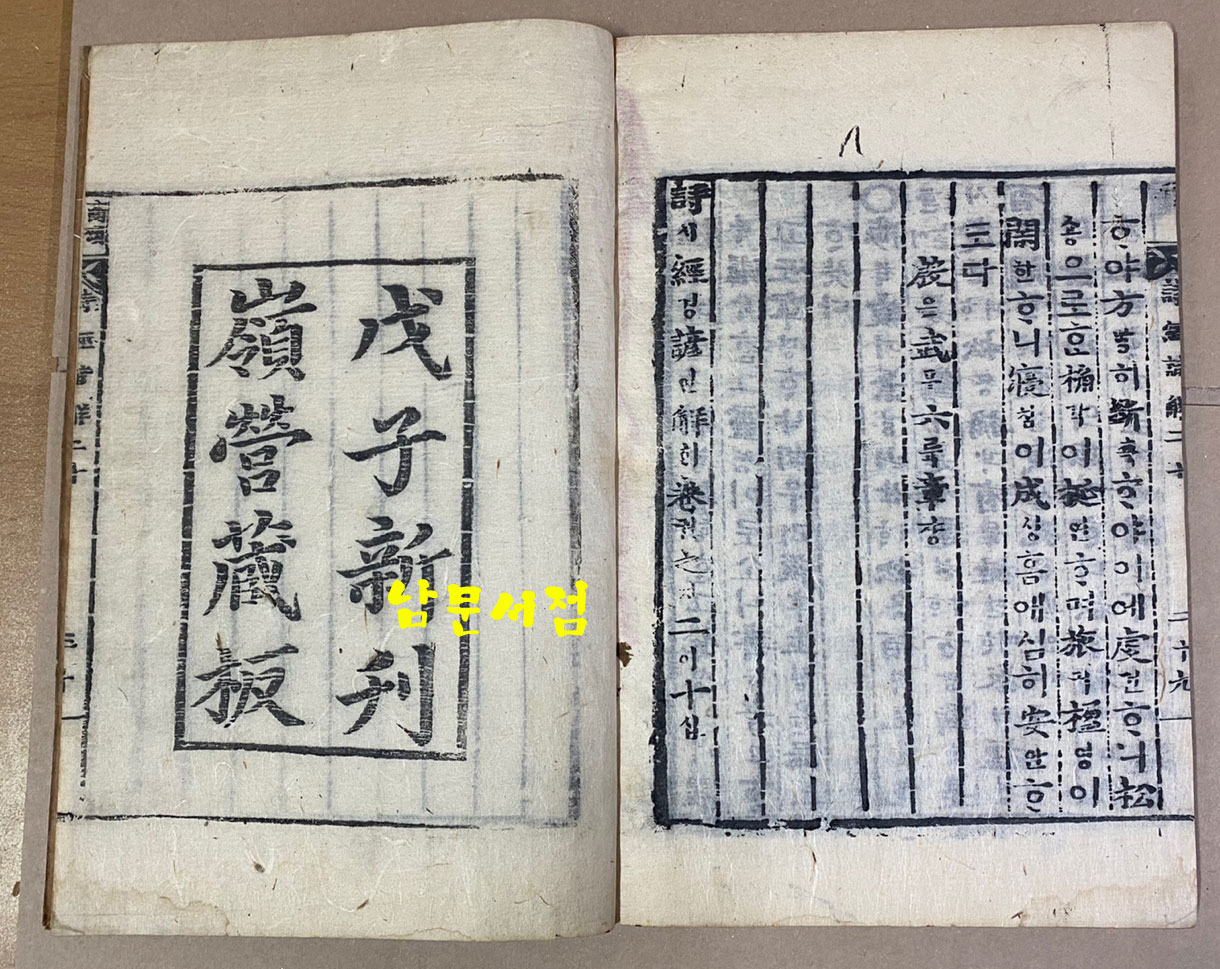 ᄒᆞ야方방히斲착ᄒᆞ야이에虔건ᄒᆞ니松
숑으로ᄒᆞᆫ桷각이梴연ᄒᆞ며旅려楹영이
閑한ᄒᆞ니寢침이成셩흠애심히安안ᄒᆞ
도다
殷은武무六륙章쟝
詩시經경諺언解ᄒᆡ卷권之지二이十십
戊子新刊
嶺營藏板
詩經諺解二十
남문서점